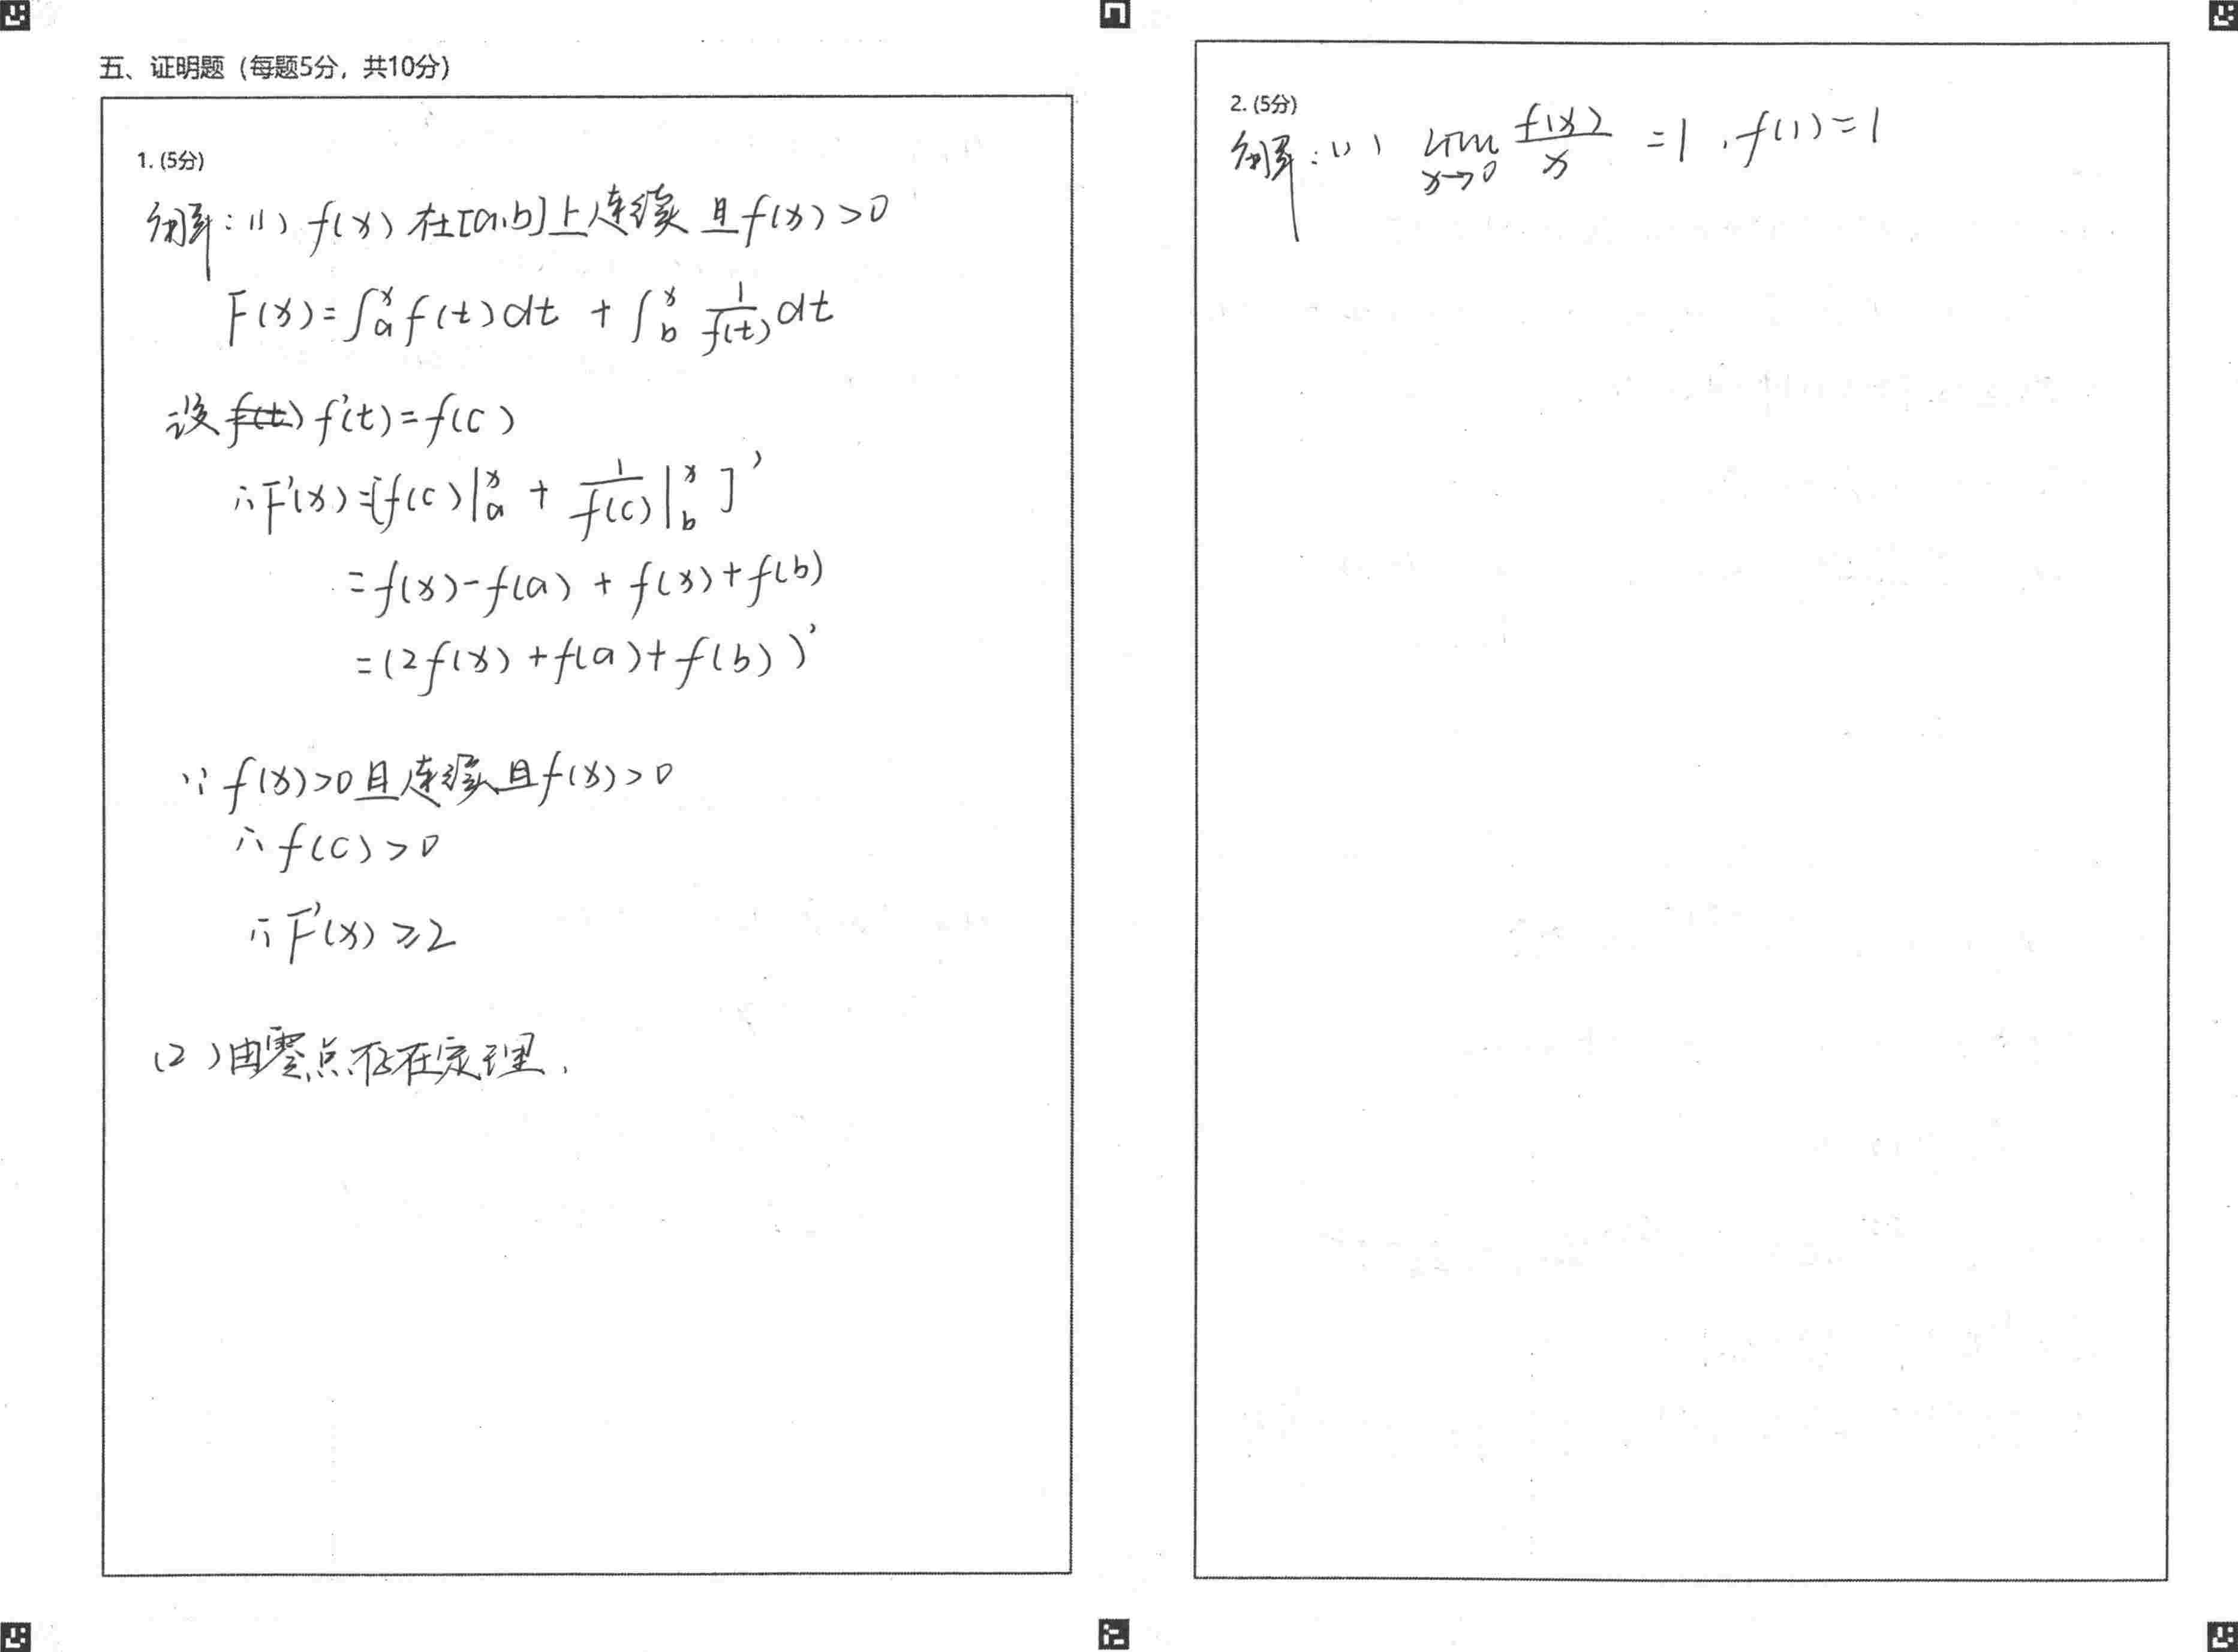 五、证明题（每题5分，共10分）
1. (5分)
解：(1) f(x) 在[a,b]上连续 且f(x)>0
F(x)=∫ₐˣ f(t)dt + ∫_b^x 1/f(t) dt
设 f(t) f'(t)=f(c)
∴F'(x)=[f(c)|ₐˣ + 1/f(c) |_b^x ]'
=f(x)-f(a) + f(x)+f(b)
=(2f(x)+f(a)+f(b))'
∵ f(x)>0且连续且f(x)>0
∴ f(c)>0
∴ F'(x)≥2
(2)由零点存在定理,
2. (5分)
解：(1) lim x→0 f(x)/x =1 , f(1)=1